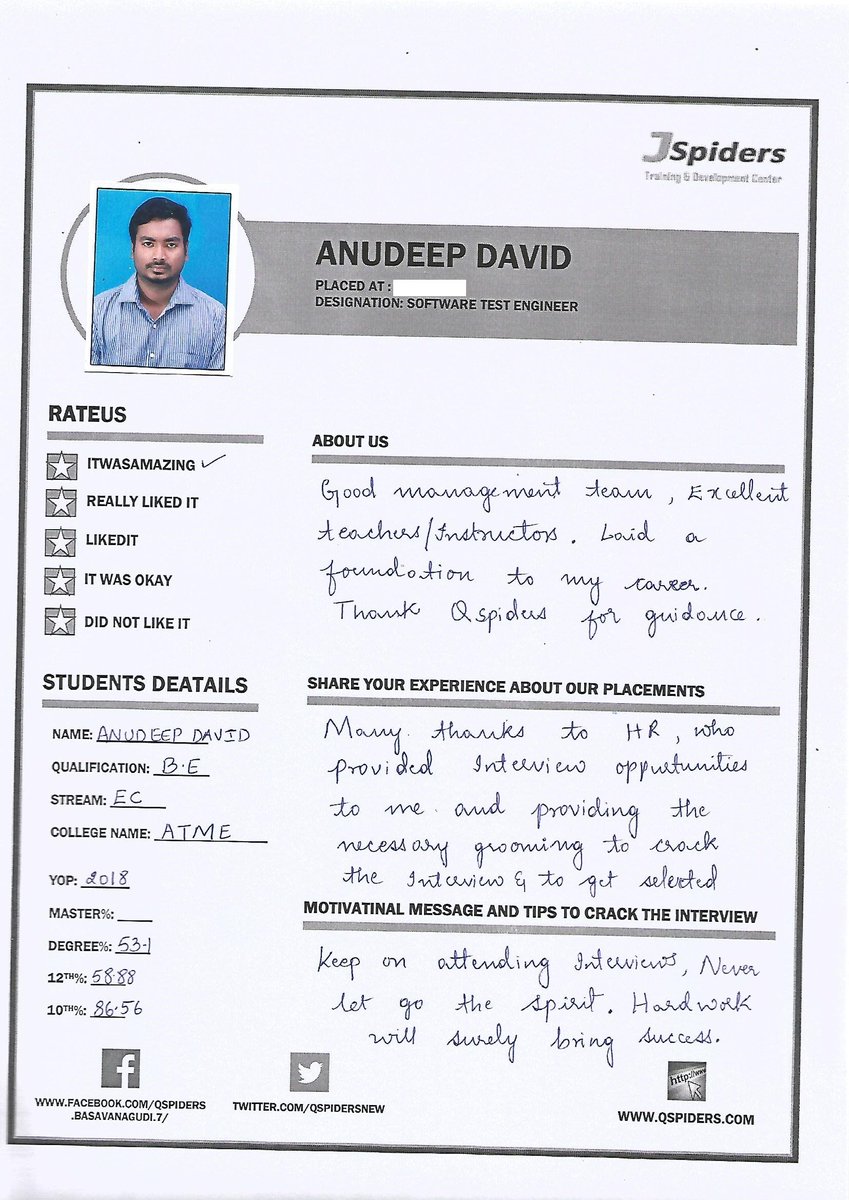 JSpiders
Training & Development Center
ANUDEEP DAVID
PLACED AT :
DESIGNATION: SOFTWARE TEST ENGINEER
RATEUS
ITWASAMAZING ✓
REALLY LIKED IT
LIKEDIT
IT WAS OKAY
DID NOT LIKE IT
ABOUT US
Good management team, Excellent
teachers/Instructors. Laid a
foundation to my career.
Thank Qspiders for guidance.
STUDENTS DEATAILS
NAME: ANUDEEP DAVID
QUALIFICATION: B.E
STREAM: EC
COLLEGE NAME: ATME
YOP: 2018
MASTER%:
DEGREE%: 53.1
12TH%: 58.88
10TH%: 86.56
SHARE YOUR EXPERIENCE ABOUT OUR PLACEMENTS
Many thanks to HR, who
provided Interview oppurtunities
to me and providing the
necessary grooming to crack
the Interview & to get selected
MOTIVATINAL MESSAGE AND TIPS TO CRACK THE INTERVIEW
Keep on attending Interviews, Never
let go the spirit. Hardwork
will surely bring success.
WWW.FACEBOOK.COM/QSPIDERS
.BASAVANAGUDI.7/
TWITTER.COM/QSPIDERSNEW
http://www
WWW.QSPIDERS.COM